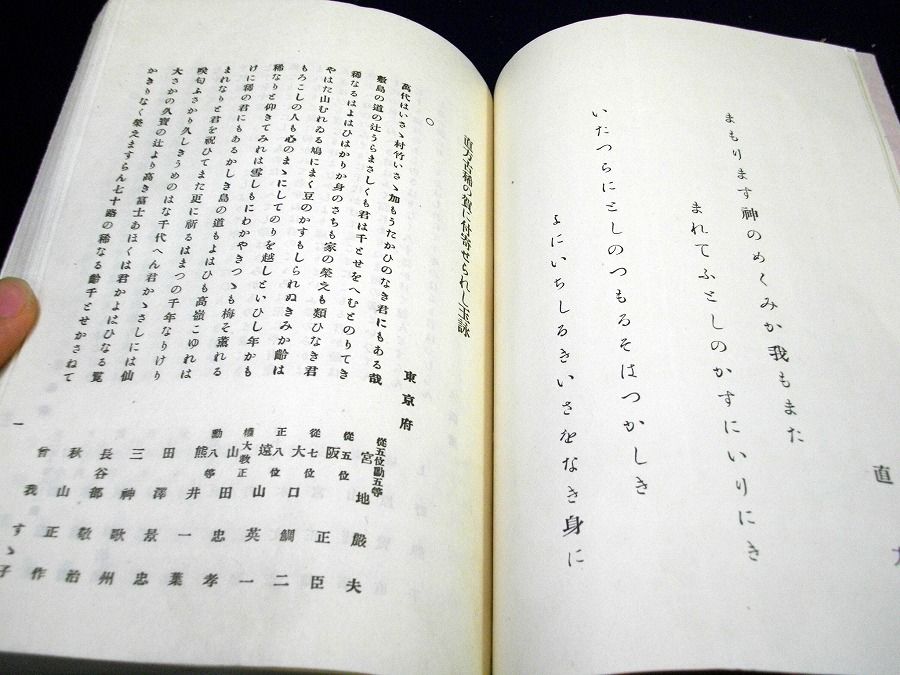 直
まもります神のめくみか我もまた
まれてふとしのかすにいりにき
いたつらにとしのつもるそはつかしき
よにいちしるきいさをなき身に
直方古稀の賀に付寄せられし玉詠
○
東京府
萬代はいさゝ村竹いさゝ加もうたかひのなき君にもある哉
從五位勳五等 宮地嚴夫
敷島の道の辻うらまさしくも君は千とせをへむとのりてき
從五位 阪正臣
稀なるはよはひはかりか身のさちも家の榮えも類ひなき君
從七位 大口鯛二
やはた山むれゐる鳩にまく豆のかすもしられぬきみか齡は
正八位 遠山英一
もろこしの人も心のまゝにしてのりを越しといひし年かも
權大敎正 山田忠孝
稀なりと仰きてみれは雪しもにわかやきつゝも梅そ薫れる
勳八等 熊井一葉
けに稀の君にもあるかしき島の道もよはひも高嶺こゆれは
田澤景忠
まれなりと君を祝ひてまた更に祈るはまつの千年なりけり
三神歌州
咲匂ふさかり久しきうめのはな千代へん君かゝさしには仙
長谷部敬治
大さかの久寳の辻より高き富士あほくは君かよはひなる覧
秋山正作
かきりなく榮えますらん七十路の稀なる齡千とせかさねて
曾我すゝ子
一